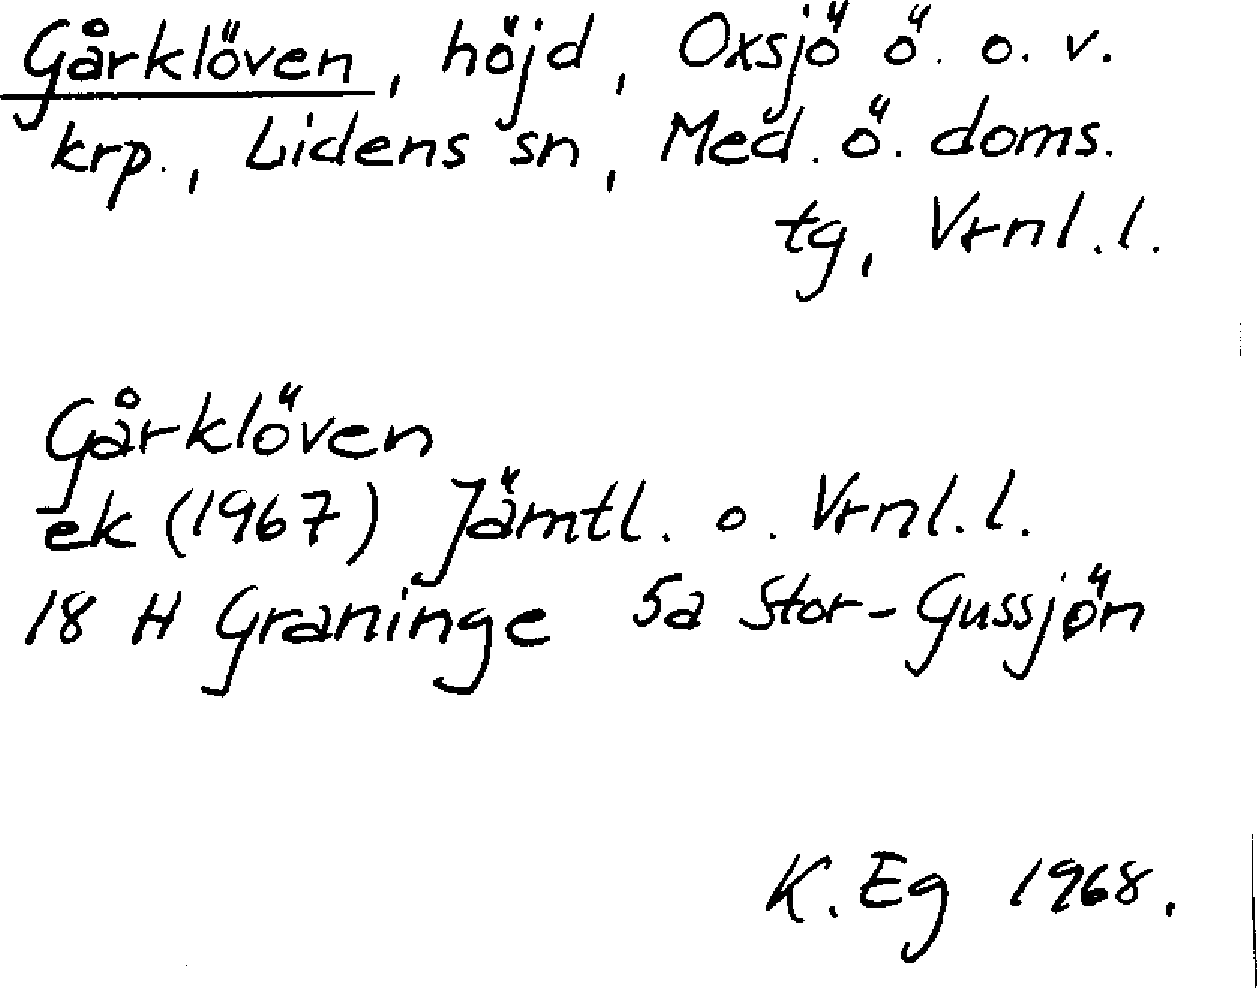 Gårklöven, höjd, Oxsjö ö. o. v.
krp., Lidens sn, Med. ö. doms.
tg, Vrnl.l.
Gårklöven
ek (1967) Jämtl. o. Vrnl.l.
18 H Graninge 5a Stor-Gussjön
K. Eg 1968.